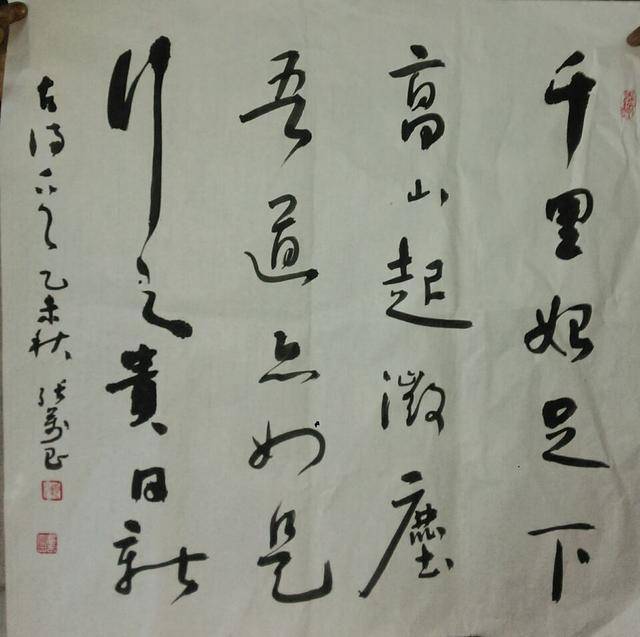 千里始足下
高山起微塵
吾道亦如是
行之貴日新
古詩一之 乙未秋 張萬